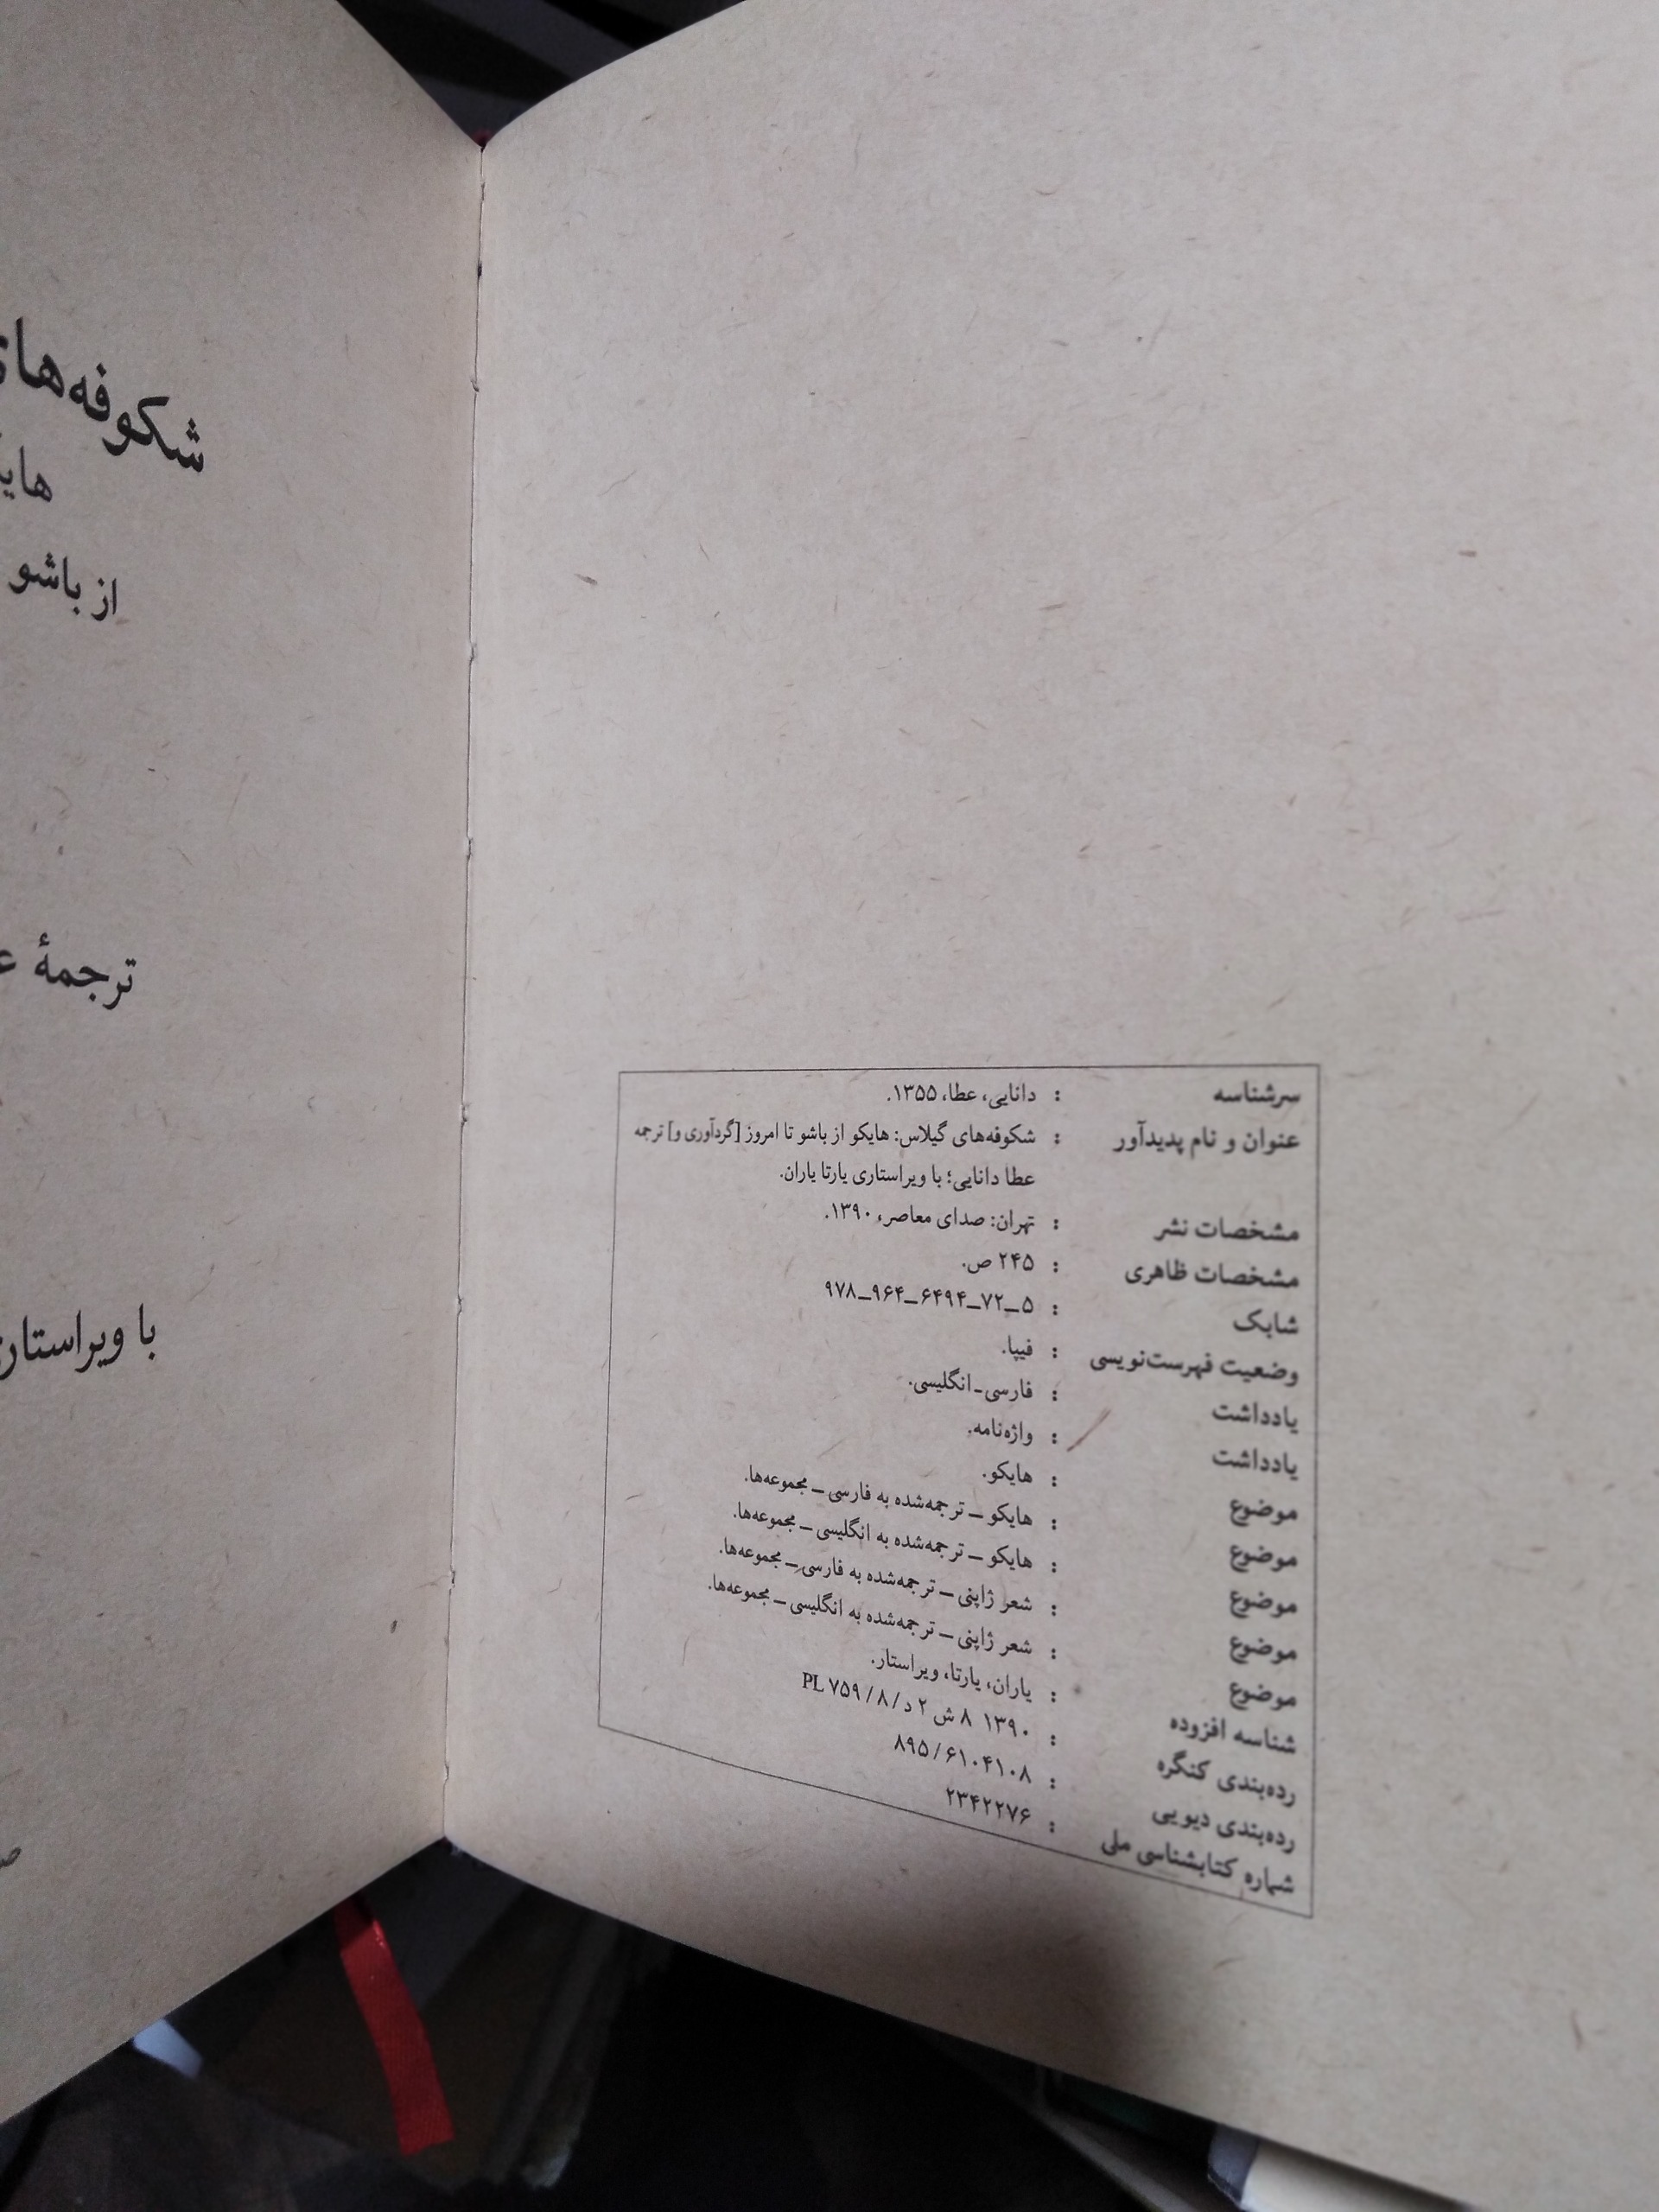 سرشناسه : دانایی، عطا، ۱۳۵۵.
عنوان و نام پدیدآور : شکوفه‌های گیلاس: هایکو از باشو تا امروز [گردآوری و] ترجمه
عطا دانایی؛ با ویراستاری یارتا یاران.
مشخصات نشر : تهران: صدای معاصر، ۱۳۹۰.
مشخصات ظاهری : ۲۴۵ ص.
شابک : ۹۷۸_۹۶۴_۶۴۹۴_۷۲_۵
وضعیت فهرست‌نویسی : فیپا.
یادداشت : فارسی-انگلیسی.
یادداشت : واژه‌نامه.
موضوع : هایکو.
موضوع : هایکو – ترجمه‌شده به فارسی – مجموعه‌ها.
موضوع : هایکو – ترجمه‌شده به انگلیسی – مجموعه‌ها.
موضوع : شعر ژاپنی – ترجمه‌شده به فارسی – مجموعه‌ها.
موضوع : شعر ژاپنی – ترجمه‌شده به انگلیسی – مجموعه‌ها.
شناسه افزوده : یاران، یارتا، ویراستار.
رده‌بندی کنگره : ۱۳۹۰ ۸ ش ۲ د/۸/ PL ۷۵۹
رده‌بندی دیویی : ۸۹۵/۶۱۰۴۱۰۸
شماره کتابشناسی ملی : ۲۳۴۲۲۷۶
شکوفه‌های
از باشو
ترجمهٔ
با ویراستاری